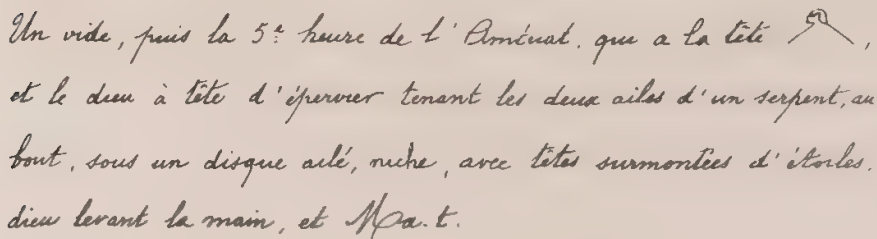 Un vide, puis la 5e heure de l'Aménat. qui a la tête ,
et le dieu à tête d'épervier tenant les deux ailes d'un serpent, au
bout, sous un disque ailé, niche, avec têtes surmontées d'étoiles.
dieu levant la main, et Ma.t.